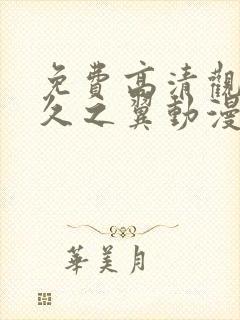 免費高清觀
久之翼動漫
華美月